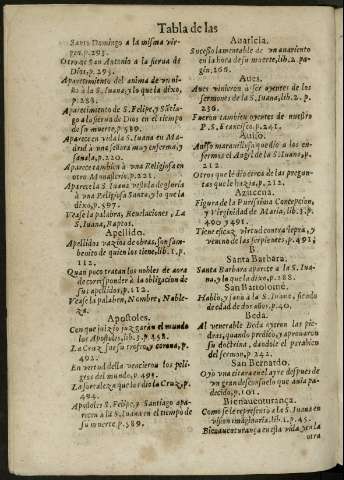 Tabla de las
Santo Domingo a la misma vir-
gen, p. 293.
Otro de San Antonio a la sierua de
Dios, p. 293.
Aparecimiento del anima de vn ni-
ño a la S. Iuana, y lo que la dixo,
p. 238.
Aparecimiento de S. Felipe, y Sãtia-
go a la sierua de Dios en el tiempo
de su muerte, p. 589.
Aparece en vida la S. Iuana en Ma-
drid a una señora muy enferma, y
sanala, p. 220.
Aparece tambien a vna Religiosa en
otro Monasterio, p. 221.
Aparece la S. Iuana vestida de gloria
à vna Religiosa Santa, y lo que la
dixo, p. 597.
Vease la palabra, Reuelaciones, La
S. Iuana, Raptos.
Apellido.
Apellidos vazios de obras, son sam-
benito de quien los tiene, lib. 1. p.
112.
Quan poco tratan los nobles de aora
de corresponder à la obligacion de
sus apellidos, p. 112.
Vease la palabra, Nombre, Noble-
za.
Apostoles.
Con que juizio juzgarán el mundo
los Apostoles, lib. 3. p. 458.
La Cruz fue su trofeo, y corona, p.
492.
En virtud della vencieron los peli-
gros del mundo, p. 491.
La fortaleza que los dio la Cruz, p.
494.
Apostoles S. Felipe, y Santiago apa-
recen à la S. Iuana en el tiempo de
su muerte, p. 589.
Auaricia.
Sucesso lamentable de vn auariento
en la hora de su muerte, lib. 2. pa-
gin. 266.
Aues.
Aues vinieron à ser oyentes de los
sermones de la S. Iuana, lib. 2. p.
236.
Fueron tambien oyentes de nuestro
P. S. Francisco, p. 241.
Auiso.
Auiso marauilloso que dio a los en-
fermos el Angel de la S. Iuana, p.
211
Otros que le dio cerca de las pregun-
tas que le hazia, p. 212.
Azucena.
Figura de la Purissima Concepcion,
y Virginidad de Maria, lib. 3. p.
490 y 491.
Tiene eficaz virtud contra lepra, y
veneno de las serpientes, p. 491,
B.
Santa Barbara.
Santa Barbara aparece a la S. Iua-
na, y lo que la dixo. p. 288.
San Bartolomé.
Habló, y sanò à la S. Iuana, siendo
de edad de dos años, p. 40.
Beda.
Al venerable Beda oyeron las pie-
dras, quando predicò, y aprouaron
su doctrina, dandole el parabien
del sermon, p. 242.
San Bernardo.
Oyò vna citara en el ayre despues de
vn gran desconsuelo que auia pa-
decido, p. 101.
Bienauenturança.
Como se le representò a la S. Iuana en
vision imaginaria, lib. 1. p. 45.
Bienauenturança en esta vida, y en la
otra